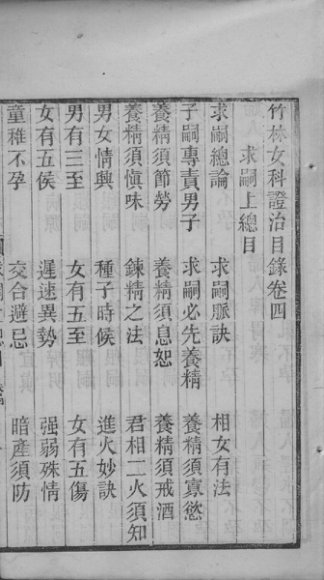 竹林女科證治目錄卷四
求嗣上總目
求嗣總論 求嗣脈訣 相女有法
子嗣專責男子 求嗣必先養精 養精須寡慾
養精須節勞 養精須息恕 養精須戒酒
養精須愼味 鍊精之法 君相二火須知
男女情興 種子時候 進火妙訣
男有三至 女有五至 女有五傷
女有五侯 遲速異勢 强弱殊情
童稚不孕 交合避忌 暗產須防